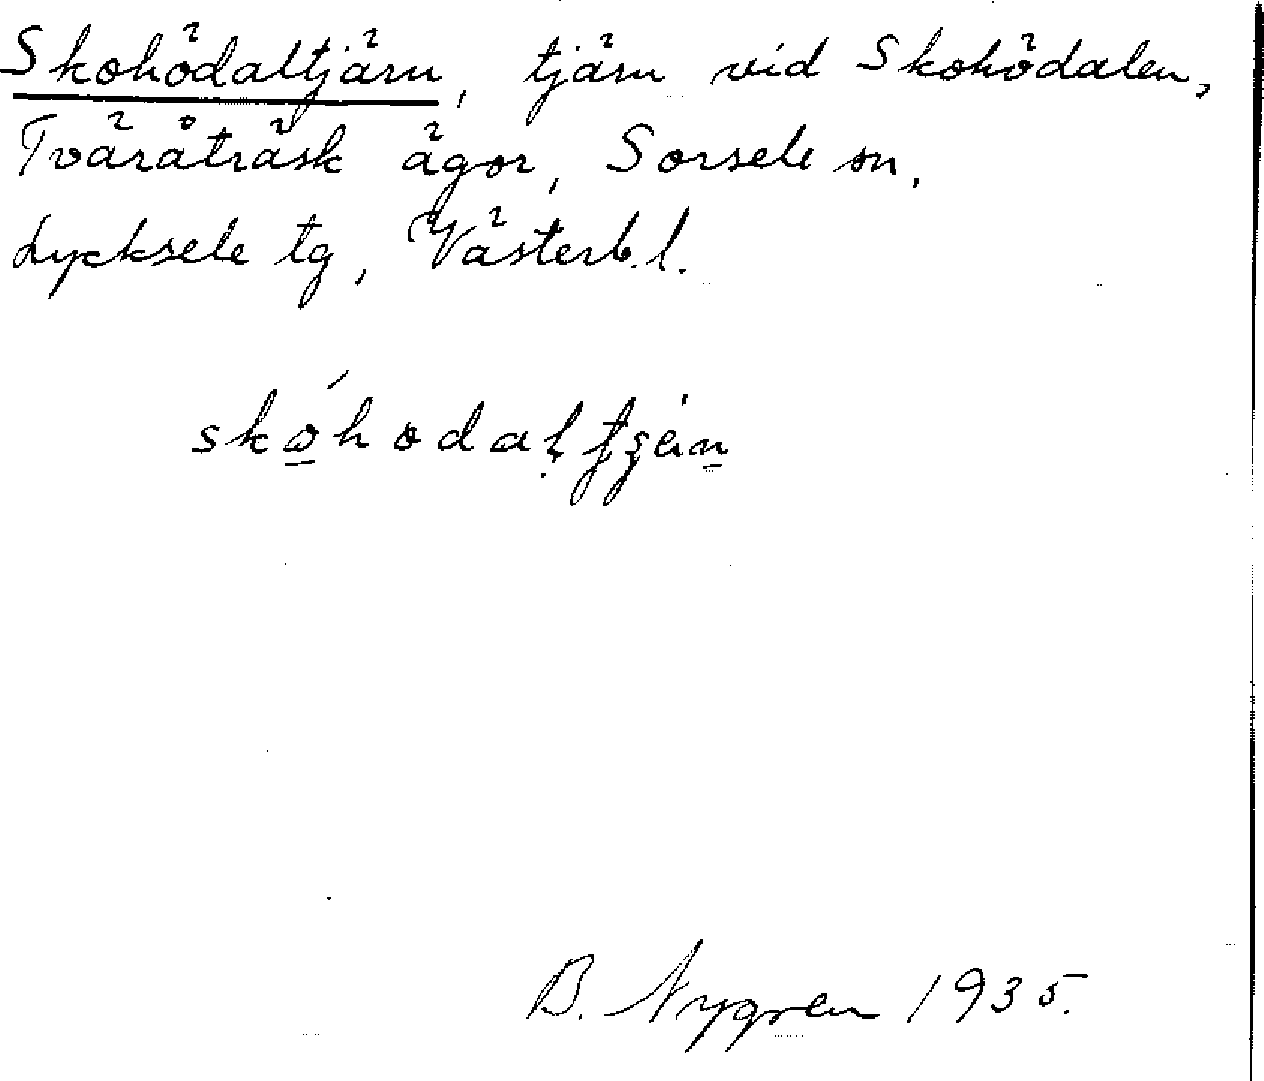 Skohödaltjärn, tjärn vid Skohödalen,
Tväråträsk ägor, Sorsele sn.
Lycksele tg, Västerb.l.
B. Nygren 1935.